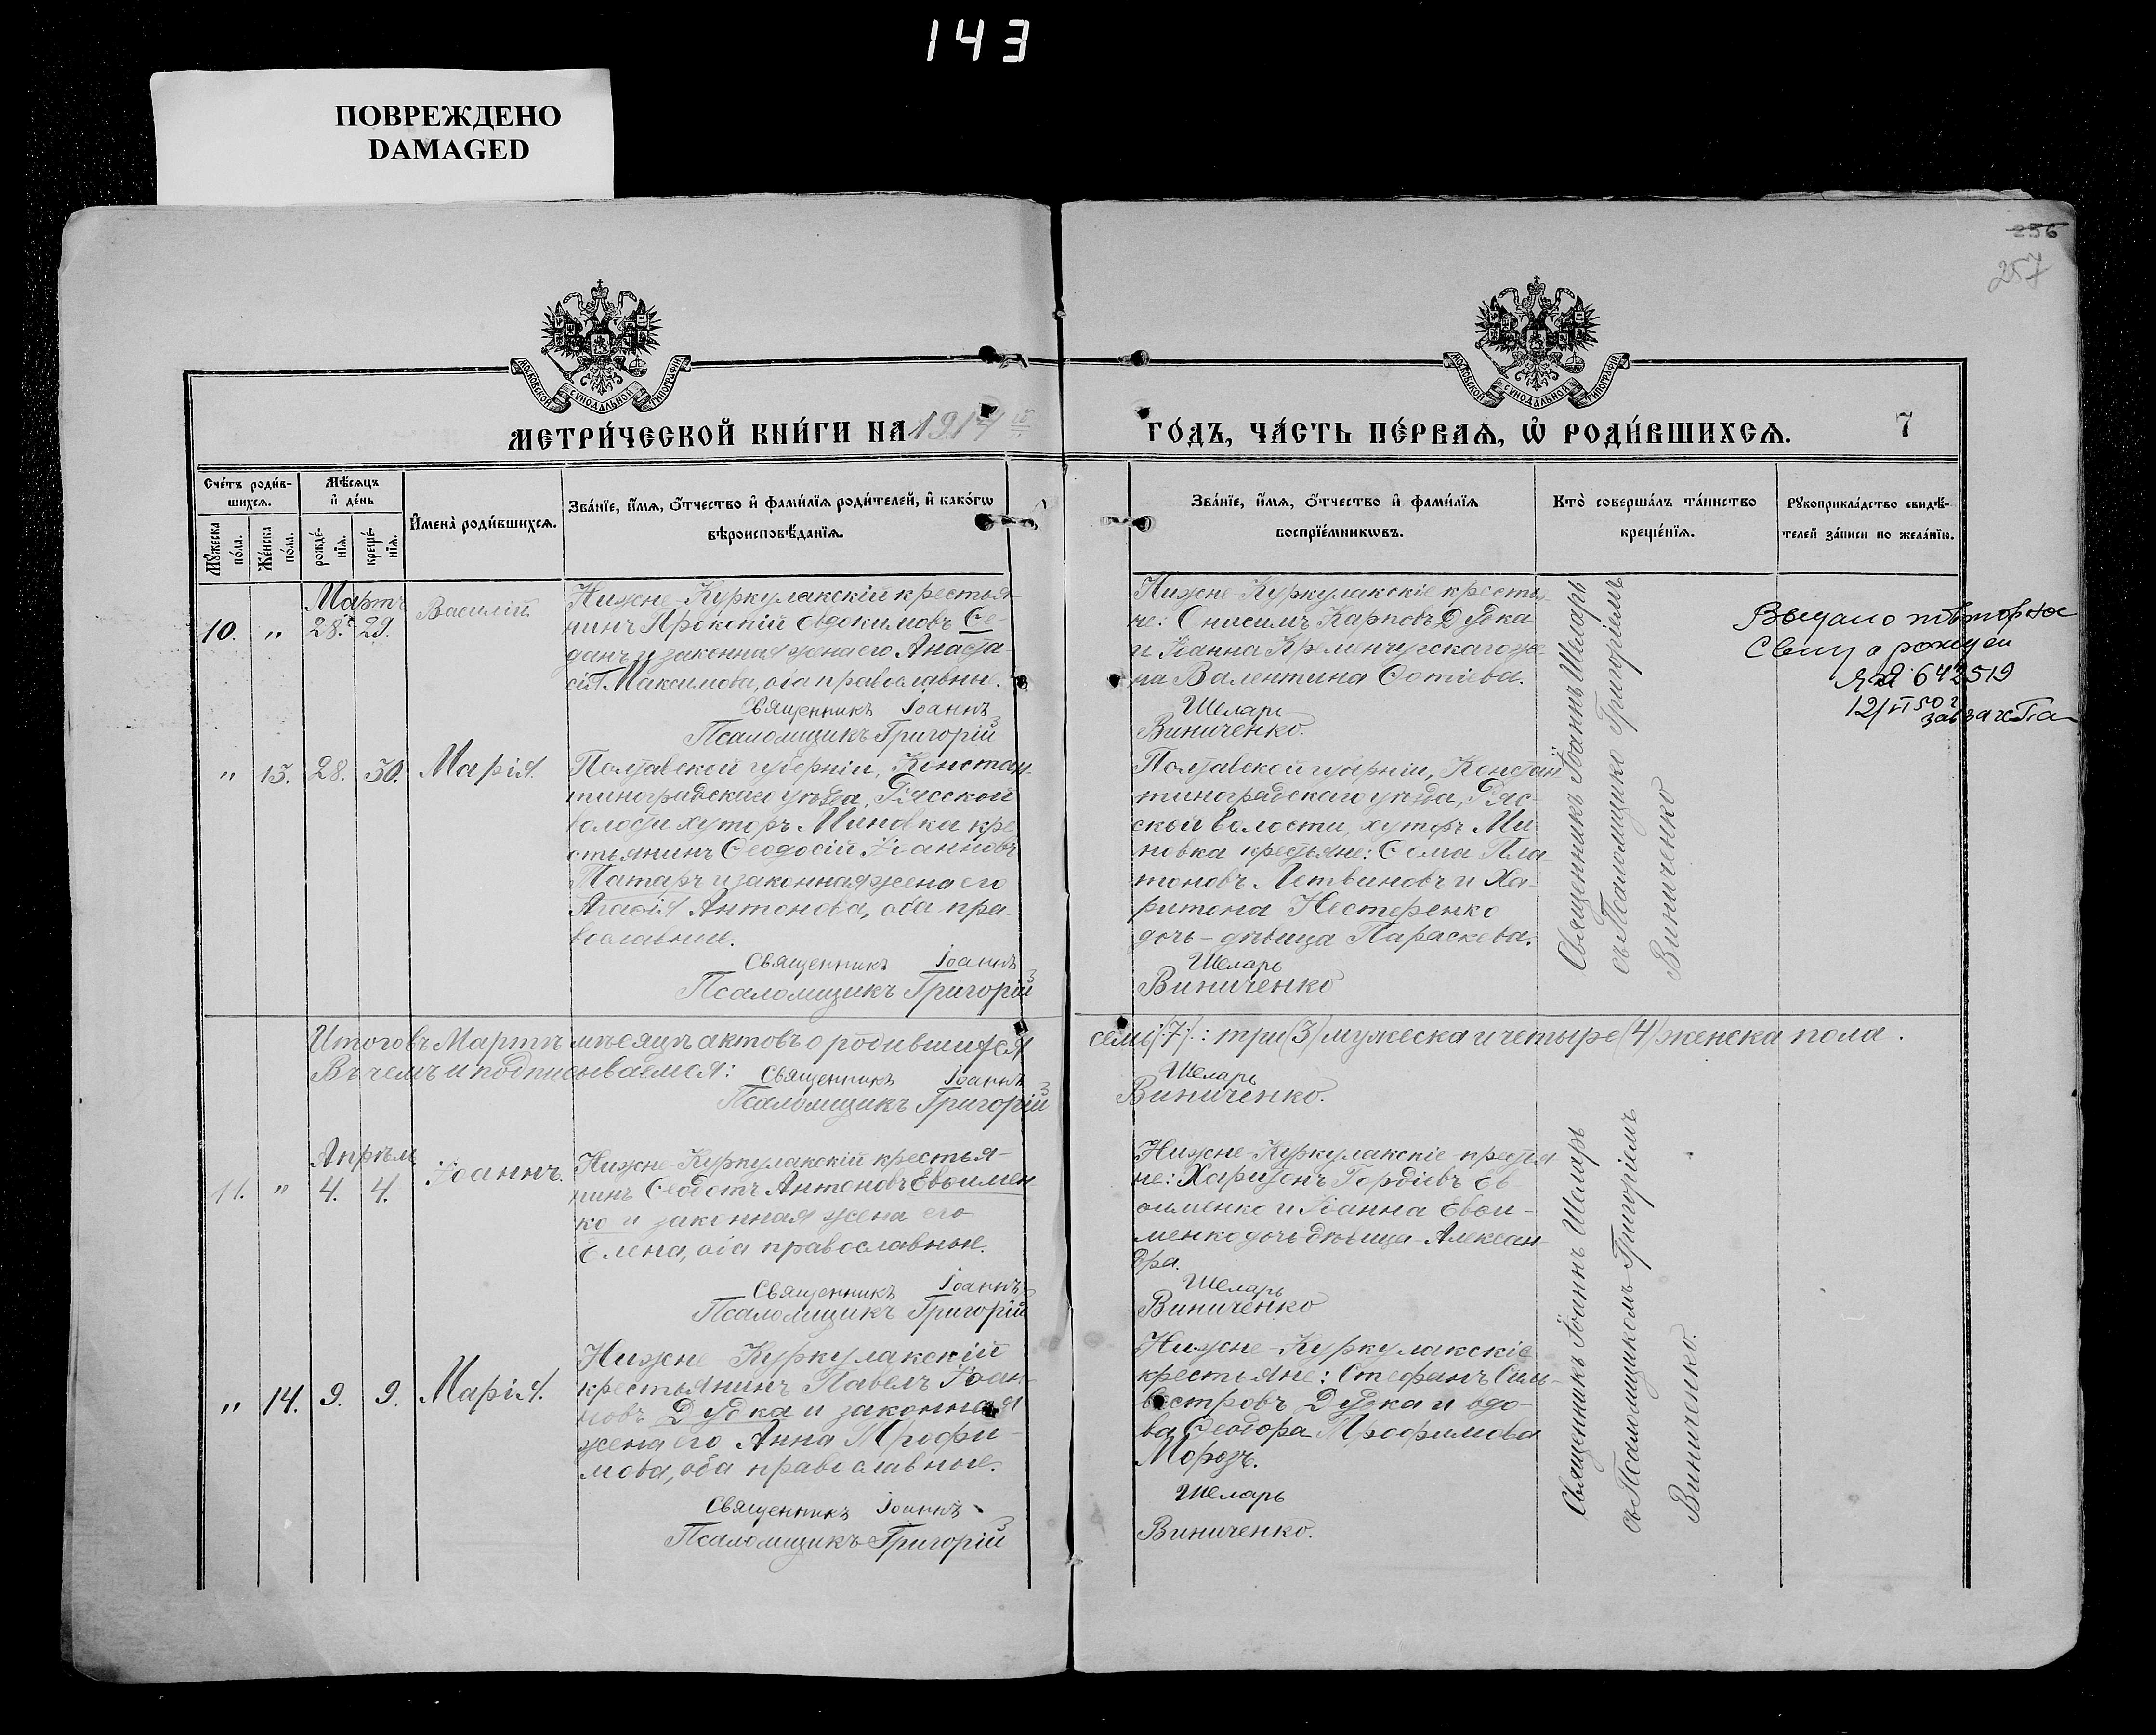 143
ПОВРЕЖДЕНО
DAMAGED
256
257
МОСКОВСКОЙ СѴНОДАЛЬНОЙ ТИПОГРАФІИ
МОСКОВСКОЙ СѴНОДАЛЬНОЙ ТИПОГРАФІИ
МЕТРИ́ЧЕСКОЙ КНИ́ГИ НА 1917 й
ГО́ДЪ, ЧА́СТЬ ПЕ́РВАѦ, Ѡ҆ РОДИ́ВШИХСѦ.
7
Сче́тъ роди́в-
шихсѧ.
Мꙋ́жеска
по́ла.
Же́нска
по́ла.
Мѣ́сѧцъ
и҆ де́нь
рожде́-
нїѧ.
креще́-
нїѧ.
И҆мена̀ роди́вшихсѧ.
Зва́нїе, и҆́мѧ, ѻ҆́тчество и҆ фами́лїѧ роди́телей, и҆ како́гѡ
вѣроисповѣ́данїѧ.
Зва́нїе, и҆́мѧ, ѻ҆́тчество и҆ фами́лїѧ
воспрїе́мникѡвъ.
Кто̀ соверша́лъ та́инство
креще́нїѧ.
Рꙋкоприкла́дство свидѣ́-
телей за́писи по жела́нїю.
Мартъ
10. " 28. 29. Василій.
Нижне-Куркулакскій крестья-
нинъ Прокопій Евдокимовъ Се-
данъ и законная жена его Анаста-
сія Максимова, оба православные.
Священникъ Іоаннъ
Псаломщикъ Григорій
Нижне-Куркулакскіе крестья-
не: Онисимъ Карповъ Дудка
и Іоанна Кременчугскаго же-
на Валентина Фотіева.
Шеларь
Виниченко.
Священникъ Іоаннъ Шеларь
съ Псаломщикомъ Григоріемъ
Виниченко
Выдано повторное
Свид о рожден
ЯД 642519
12/VI 50 г
зав загса
" 13. 28. 30. Марія.
Полтавской губерніи, Констан-
тиноградскаго уѣзда, Рясской
волости хуторъ Миновка кре-
стьянинъ Ѳеодосій Іоанновъ
Татаръ и законная жена его
Агаѳія Антонова, оба пра-
вославные.
Священникъ Іоаннъ
Псаломщикъ Григорій
Полтавской губерніи, Констан-
тиноградскаго уѣзда, Ряс-
ской волости, хуторъ Ми-
новка крестьяне: Ѳома Пла-
тоновъ Летвиновъ и Ха-
ритона Нестеренко
дочь-дѣвица Параскева.
Шеларь
Виниченко
Итого въ Мартѣ мѣсяцѣ актовъ о родившихся
семь (7): три (3) мужеска и четыре (4) женска пола.
Въ чемъ и подписываемся:
Священникъ Іоаннъ
Псаломщикъ Григорій
Шеларь
Виниченко.
Апрѣль
11. " 4. 4. Іоаннъ.
Нижне-Куркулакскій крестья-
нинъ Ѳеодотъ Антоновъ Евѳимен
ко и законная жена его
Елена, оба православные.
Священникъ Іоаннъ
Псаломщикъ Григорій
Нижне-Куркулакскіе крестья-
не: Харитонъ Гордіевъ Ев-
ѳименко и Іоанна Евѳи-
менко дочь дѣвица-Алексан-
дра.
Шеларь
Виниченко
Священникъ Іоаннъ Шеларь
съ Псаломщикомъ Григоріемъ
Виниченко.
" 14. 9. 9. Марія.
Нижне Куркулакскій
крестьянинъ Павелъ Іоан-
новъ Дудка и законная
жена его Анна Трофи-
мова, оба православные.
Священникъ Іоаннъ
Псаломщикъ Григорій
Нижне-Куркулакскіе
крестьяне: Стефанъ Силь-
вестровъ Дудка и вдо-
ва Ѳеодора Трофимова
Морозъ.
Шеларь
Виниченко.